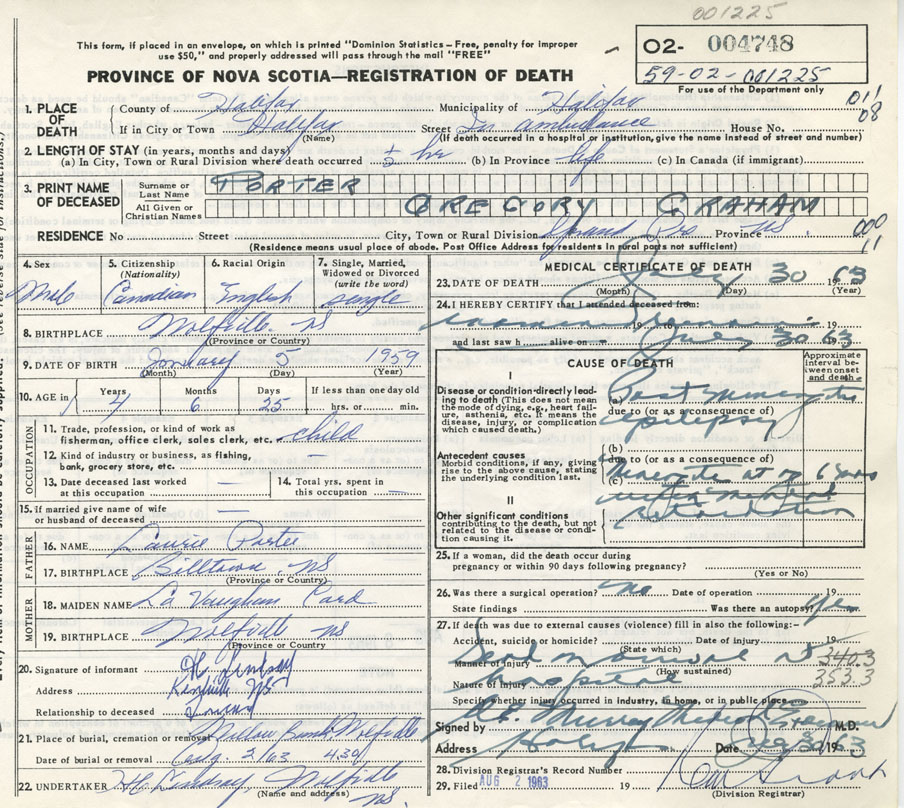 001225
This form, if placed in an envelope, on which is printed "Dominion Statistics – Free, penalty for improper
use $50," and properly addressed will pass through the mail "FREE"
O2- 004748
59-02-001225
For use of the Department only
PROVINCE OF NOVA SCOTIA—REGISTRATION OF DEATH
011
08
1. PLACE OF DEATH
County of Halifax Municipality of Halifax
If in City or Town Halifax Street In ambulance House No.
(Name) (If death occurred in a hospital or institution, give name instead of street and number)
2. LENGTH OF STAY (in years, months and days)
(a) In City, Town or Rural Division where death occurred ½ hr (b) In Province life (c) In Canada (if immigrant)
3. PRINT NAME OF DECEASED
Surname or Last Name PORTER
All Given or Christian Names GREGORY GRAHAM
RESIDENCE No Street City, Town or Rural Division Province NS
(Residence means usual place of abode. Post Office Address for residents in rural parts not sufficient)
000
11
4. Sex
Male
5. Citizenship (Nationality)
Canadian
6. Racial Origin
English
7. Single, Married, Widowed or Divorced (write the word)
single
8. BIRTHPLACE Wolfville NS
(Province or Country)
9. DATE OF BIRTH January 5 1959
(Month) (Day) (Year)
10. AGE in Years Months 6 Days 25 If less than one day old
hrs. or min.
OCCUPATION
11. Trade, profession or kind of work as
fisherman, office clerk, sales clerk, etc. child
12. Kind of industry or business, as fishing,
bank, grocery store, etc. —
13. Date deceased last worked
at this occupation —
14. Total yrs. spent in
this occupation —
15. If married give name of wife
or husband of deceased —
FATHER
16. NAME Laurie Porter
17. BIRTHPLACE Billtown, NS
(Province or Country)
MOTHER
18. MAIDEN NAME La Vaughan Card
19. BIRTHPLACE Wolfville NS
(Province or Country)
20. Signature of informant H Lindsay
Address Kentville NS
Relationship to deceased
21. Place of burial, cremation or removal Willow Bank Wolfville
Date of burial or removal Aug. 2/63 430
22. UNDERTAKER H Lindsay, Wolfville
(Name and address) NS.
MEDICAL CERTIFICATE OF DEATH
23. DATE OF DEATH July 30 1963
(Month) (Day) (Year)
24. I HEREBY CERTIFY that I attended deceased from:
19 to 19
and last saw h alive on July 30 63
CAUSE OF DEATH
Approximate interval between onset and death
I
Disease or condition directly leading to death (This does not mean the mode of dying, e.g., heart failure, asthenia, etc. It means the disease, injury, or complication which caused death.)
(a) Post
due to (or as a consequence of)
epilepsy
Antecedent causes
Morbid conditions, if any, giving rise to the above cause, stating the underlying condition last.
(b)
due to (or as a consequence of)
(c) at 6
mental
II
Other significant conditions
contributing to the death, but not related to the disease or condition causing it.
retardation
25. If a woman, did the death occur during
pregnancy or within 90 days following pregnancy?
(Yes or No)
26. Was there a surgical operation? No Date of operation 19
State findings Was there an autopsy? Yes
27. If death was due to external causes (violence) fill in also the following:-
Accident, suicide or homicide? Date of injury 19
(State which)
Manner of injury Dead on arrival at 340.3
(How sustained)
Nature of injury hospital 353.3
Specify whether injury occurred in industry, in home, or in public place
Signed by M.D.
Address Halifax Date 1963
28. Division Registrar's Record Number
29. Filed AUG 2 1963 19
(Division Registrar)